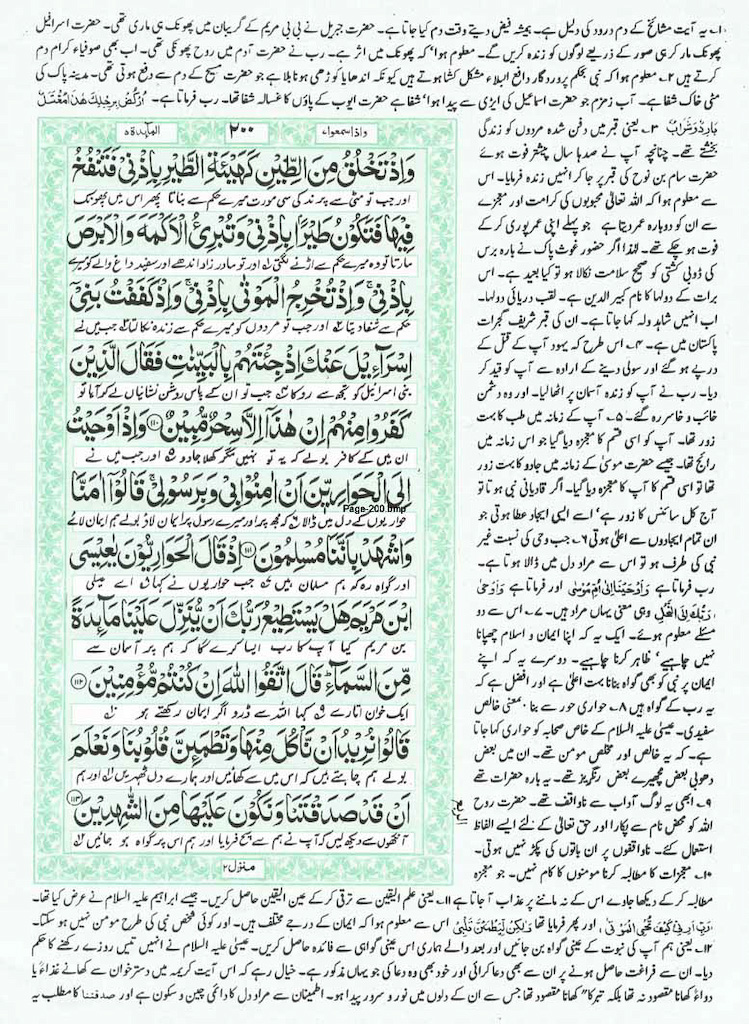 ۱۔ یہ آیت مشائخ کے دم درود کی دلیل ہے۔ ہمیشہ فیض دیتے وقت دم کیا جاتا ہے۔ حضرت جبریل نے بی بی مریم کے گریبان میں پھونک ہی ماری تھی۔ حضرت اسرافیل
پھونک مار کر ہی صور کے ذریعے لوگوں کو زندہ کریں گے۔ معلوم ہوا، کہ پھونک میں اثر ہے۔ رب نے حضرت آدم میں روح پھونکی تھی۔ اب بھی صوفیاء کرام دم
کرتے ہیں ۲۔ معلوم ہوا کہ نبی بحکم پروردگار دافع البلاء مشکل کشا ہوتے ہیں کیونکہ اندھا یا کوڑھی ہونا بلا ہے جو حضرت مسیح کے دم سے دفع ہوتی تھی۔ مدینہ پاک کی
مٹی خاک شفا ہے۔ آب زمزم جو حضرت اسماعیل کی ایڑی سے پیدا ہوا، شفا ہے حضرت ایوب کے پاؤں کا غسالہ شفا تھا۔ رب فرماتا ہے۔ اُرْكُضْ بِرِجْلِكَ هٰذَا مُغْتَسَلٌ
بَارِدٌ وَّشَرَابٌ ۳۔ یعنی قبر میں دفن شدہ مردوں کو زندگی
بخشتے تھے۔ چنانچہ آپ نے صدہا سال پیشتر فوت ہوئے
حضرت سام بن نوح کی قبر پر جا کر انہیں زندہ فرمایا۔ اس
سے معلوم ہوا کہ اللہ تعالیٰ محبوبوں کی کرامت اور معجزے
سے ان کو دوبارہ عمر دیتا ہے جو پہلے اپنی عمر پوری کر کے
فوت ہو چکے تھے۔ لہٰذا اگر حضور غوث پاک نے بارہ برس
کی ڈوبی کشتی کو صحیح سلامت نکالا ہو تو کیا بعید ہے۔ اس
برات کے دولہا کا نام کبیر الدین ہے۔ لقب دریائی دولہا۔
اب انہیں شاہد ولہ کہا جاتا ہے۔ ان کی قبر شریف گجرات
پاکستان میں ہے۔ ۴۔ اس طرح کہ یہود آپ کے قتل کے
درپے ہو گئے اور سولی دینے کے ارادہ سے آپ کو قید کر
دیا۔ رب نے آپ کو زندہ آسمان پر اٹھا لیا۔ اور وہ دشمن
خائب و خاسر رہ گئے۔ ۵۔ آپ کے زمانہ میں طب کا بہت
زور تھا۔ آپ کو اسی قسم کا معجزہ دیا گیا جو اس زمانہ میں
رائج تھا۔ جیسے حضرت موسیٰ کے زمانہ میں جادو کا بہت زور
تھا تو اسی قسم کا آپ کا معجزہ دیا گیا۔ اگر قادیانی نبی ہوتا تو
آج کل سائنس کا زور ہے، اسے ایسی ایجاد عطا ہوتی جو
ان تمام ایجادوں سے اعلیٰ ہوتی ۶۔ جب وحی کی نسبت غیر
نبی کی طرف ہو تو اس سے مراد دل میں ڈالا ہوتا ہے۔
رب فرماتا ہے وَاَوْحَيْنَا اِلٰى اُمِّ مُوسٰى اور فرماتا ہے وَاَوْحٰى
رَبُّكَ اِلَى النَّحْلِ وہی معنی یہاں مراد ہیں۔ ۷۔ اس سے دو
مسئلے معلوم ہوئے۔ ایک یہ کہ اپنا ایمان و اسلام چھپانا
نہیں چاہیے، ظاہر کرنا چاہیے۔ دوسرے یہ کہ اپنے
ایمان پر نبی کو بھی گواہ بنانا بہت اعلیٰ ہے اور افضل ہے کہ
یہ رب کے گواہ ہیں ۸۔ حواری حور سے بنا، بمعنی خالص
سفیدی۔ عیسیٰ علیہ السلام کے خاص صحابہ کو حواری کہا جاتا
ہے۔ کہ یہ خالص اور مخلص مومن تھے۔ ان میں بعض
دھوبی بعض مچھیرے بعض رنگریز تھے۔ یہ بارہ حضرات تھے
۹۔ ابھی یہ لوگ آداب سے ناواقف تھے۔ حضرت روح
اللہ کو محض نام سے پکارا اور حق تعالیٰ کے لئے ایسے الفاظ
استعمال کئے۔ ناواقفوں پر ان باتوں کی پکڑ نہیں ہوتی۔
۱۰۔ معجزات کا مطالبہ کرنا مومنوں کا کام نہیں۔ جو معجزہ
المآئدۃ ۵
۲۰۰
واذا سمعوا ۷
وَاِذْ تَخْلُقُ مِنَ الطِّيْنِ كَهَيْئَةِ الطَّيْرِ بِاِذْنِيْ فَتَنْفُخُ
اور جب تو مٹی سے پرند کی سی مورت میرے حکم سے بناتا پھر اس میں پھونک
فِيْهَا فَتَكُوْنُ طَيْرًۢا بِاِذْنِيْ وَتُبْرِئُ الْاَكْمَهَ وَالْاَبْرَصَ
مارتا تو وہ میرے حکم سے اڑنے لگتی اور تو مادر زاد اندھے اور سفید داغ والے کو میرے
بِاِذْنِيْ ۚ وَاِذْ تُخْرِجُ الْمَوْتٰى بِاِذْنِيْ ۚ وَاِذْ كَفَفْتُ بَنِيْٓ
حکم سے شفا دیتا اور جب تو مردوں کو میرے حکم سے زندہ نکالتا جب میں نے
اِسْرَآءِيْلَ عَنْكَ اِذْ جِئْتَهُمْ بِالْبَيِّنٰتِ فَقَالَ الَّذِيْنَ
بنی اسرائیل کو تجھ سے روکا جب تو ان کے پاس روشن نشانیاں لے کر آیا تو
كَفَرُوْا مِنْهُمْ اِنْ هٰذَآ اِلَّا سِحْرٌ مُّبِيْنٌ ۝۱۱۰ وَاِذْ اَوْحَيْتُ
ان میں کے کافر بولے کہ یہ تو نہیں مگر کھلا جادو اور جب میں نے
اِلَى الْحَوَارِيّٖنَ اَنْ اٰمِنُوْا بِيْ وَبِرَسُوْلِيْ ۚ قَالُوْٓا اٰمَنَّا
Page-200.bmp
حواریوں کے دل میں ڈالا کہ مجھ پر اور میرے رسول پر ایمان لاؤ بولے ہم ایمان لائے
وَاشْهَدْ بِاَنَّنَا مُسْلِمُوْنَ ۝۱۱۱ اِذْ قَالَ الْحَوَارِيُّوْنَ يٰعِيْسَى
اور گواہ رہ کہ ہم مسلمان ہیں جب حواریوں نے کہا اے عیسیٰ
ابْنَ مَرْيَمَ هَلْ يَسْتَطِيْعُ رَبُّكَ اَنْ يُّنَزِّلَ عَلَيْنَا مَآئِدَةً
بن مریم کیا آپ کا رب ایسا کرے گا کہ ہم پر آسمان سے
مِّنَ السَّمَآءِ ۭ قَالَ اتَّقُوا اللّٰهَ اِنْ كُنْتُمْ مُّؤْمِنِيْنَ ۝۱۱۲
ایک خوان اتارے کہا اللہ سے ڈرو اگر ایمان رکھتے ہو
قَالُوْا نُرِيْدُ اَنْ نَّاْكُلَ مِنْهَا وَتَطْمَىِٕنَّ قُلُوْبُنَا وَنَعْلَمَ
بولے ہم چاہتے ہیں کہ اس میں سے کھائیں اور ہمارے دل ٹھہریں اور ہم
اَنْ قَدْ صَدَقْتَنَا وَنَكُوْنَ عَلَيْهَا مِنَ الشّٰهِدِيْنَ ۝۱۱۳
آنکھوں سے دیکھ لیں کہ آپ نے ہم سے سچ فرمایا اور ہم اس پر گواہ ہو جائیں
منزل ۲
مطالبہ کر کے دیکھا جاوے اس کے نہ ماننے پر عذاب آ جاتا ہے ۱۱۔ یعنی علم الیقین سے ترقی کر کے عین الیقین حاصل کریں۔ جیسے ابراہیم علیہ السلام نے عرض کیا تھا۔
رَبِّ اَرِنِيْ كَيْفَ تُحْيِ الْمَوْتٰى، اور پھر فرمایا تھا وَلٰكِنْ لِّيَطْمَئِنَّ قَلْبِيْ اس سے معلوم ہوا کہ ایمان کے درجے مختلف ہیں۔ اور کوئی شخص نبی کی طرح مومن نہیں ہو سکتا۔
۱۲۔ یعنی ہم آپ کی نبوت کے عینی گواہ بن جائیں اور بعد والے ہماری اس عینی گواہی سے فائدہ حاصل کریں۔ عیسیٰ علیہ السلام نے انہیں تیس روزے رکھنے کا حکم
دیا۔ ان سے فراغت حاصل ہونے پر ان سے بھی دعا کرائی اور خود بھی وہ دعا کی جو یہاں مذکور ہے۔ خیال رہے کہ اس آیت کریمہ میں دسترخوان سے کھانے غذاءً یا
دواءً کھانا مقصود نہ تھا بلکہ تبرکاً کھانا مقصود تھا جس سے ان کے دلوں میں نور و سرور پیدا ہو۔ اطمینان سے مراد دل کا دائمی چین و سکون ہے اور صدقتنا کا مطلب یہ